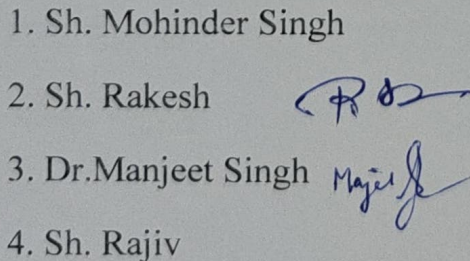 1. Sh. Mohinder Singh
2. Sh. Rakesh
3. Dr.Manjeet Singh
4. Sh. Rajiv